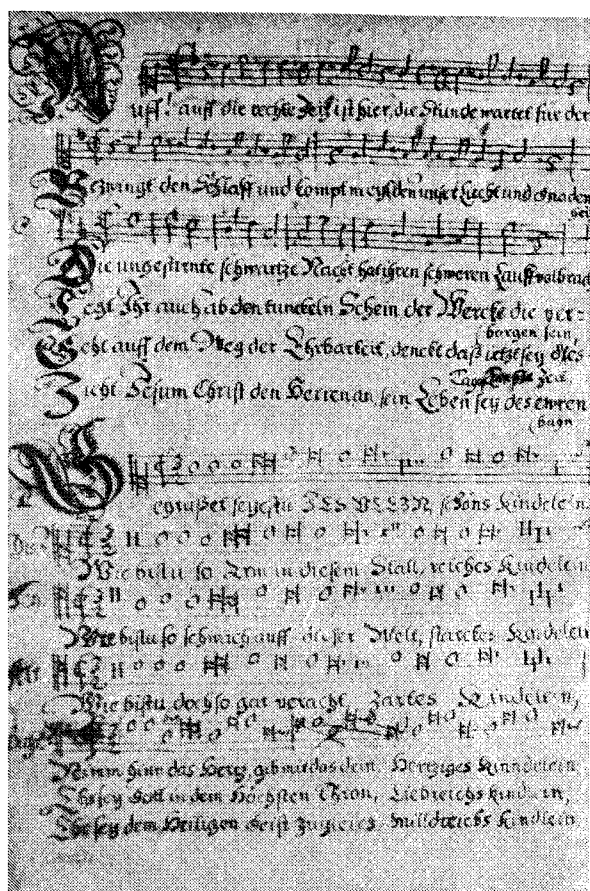 Auff! auff die rechte Zeit ist hier, die Stunde wartet für der
Bezwingt den Schlaff und kompt unser Liecht und Gnaden
Die ungestirnte schwartze Nacht hat ihren schweren Lauff volbracht
Legt Ihr auch ab den tunckeln Schein der Wercke die ver-
borgen sein,
Geht auff dem Weg der Ehrbarkeit, denckt daß sey
Zieht Jesum Christ den Herren an, sein Leben sey des
Begrüßet seystu JESULEIN, schöns Kindelein
Wie bistu so Arm in diesem Stall, reiches Kindelein
Wie bistu so schwach auff dieser Welt, starckes Kindelein
Alt
Wie bistu doch so gar veracht, zartes Kindelein,
Nimm hinn das Hertz, gib mir das dein, Hertziges Kinndelein
Ehr sey Gott in dem Höchsten Thron, Liebreichs Kindlein,
Ehr sey dem Heiligen Geist zugleich, milldreichs Kindlein